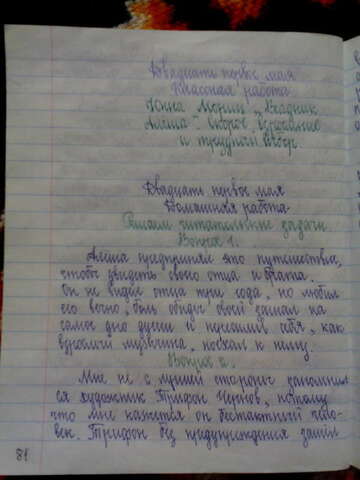 Двадцать первое мая
Классная работа
Юнна Мориц „Всадник
Алёша". Скорое взросление
и трудный выбор
Двадцать первое мая
Домашняя работа
Решаем читательские задачи.
Вопрос 1.
Алёша предпринял это путешествие,
чтобы увидеть своего отца и брата.
Он не видел отца три года, но любил
его вечно, боль обиды своей загнал на
самое дно души и пересилил себя, как
взрослый мужчина, поехал к нему.
Вопрос 2.
Мне не с лучшей стороны запомнил
ся художник Трифон Чернов, потому
что мне кажется он бестактный чело-
век. Трифон без предупреждения зашёл
81